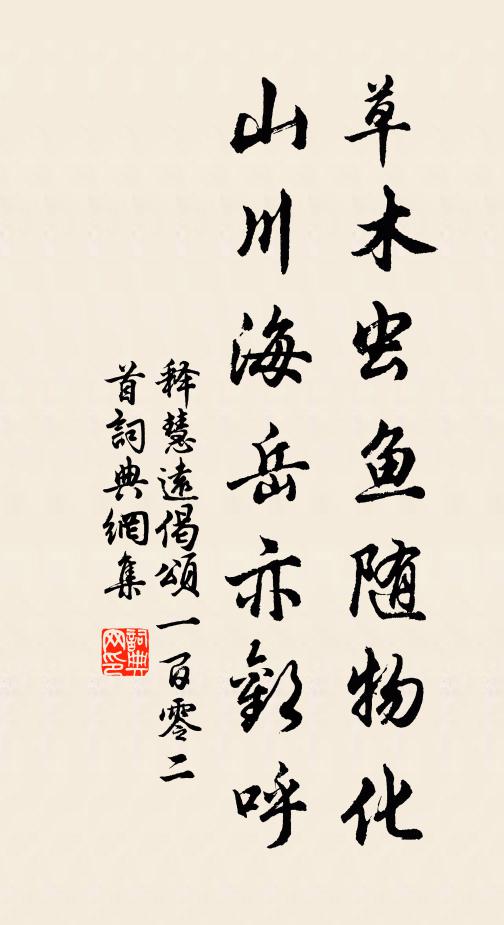 草木虫鱼随物化
山川海岳亦歡呼
释慧遠偈頌一百零二
首詞典網集
詞典网印